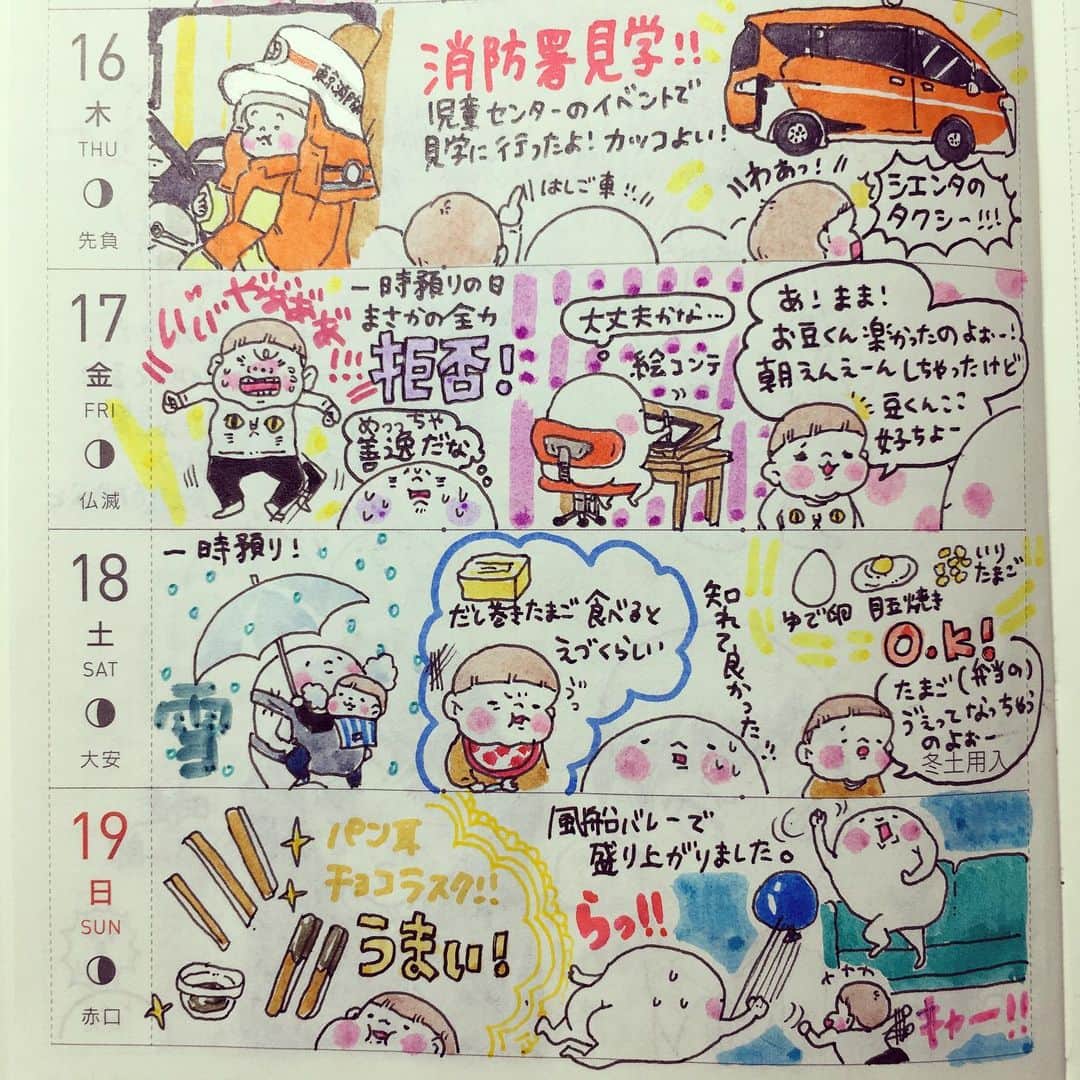 16
木
THU
先負
消防署見学!!
児童センターのイベントで
見学に行ったよ！カッコよい！
はしご車!!
わあっ！
シエンタの
タクシー!!!
17
金
FRI
仏滅
いいやぁぁぁぁ!!!
一時預りの日
まさかの全力
拒否！
めっっちゃ
善逸だな
大丈夫かな…
絵コンテ
あ！まま！
お豆くん楽かったのよぉー！
朝えんえーんしちゃったけど
豆くんここ
好ちよー
18
土
SAT
大安
一時預り！
雪
だし巻きたまご食べると
えづくらしい
知れて良かった!!
ゆで卵
目玉焼き
いり
たまご
O.K!
たまご(弁当の)
うえってなっちゃう
のよぉー
冬土用入
19
日
SUN
赤口
パン耳
チョコラスク!!
うまい！
風船バレーで
盛り上がりました。
らっ!!
キャー!!